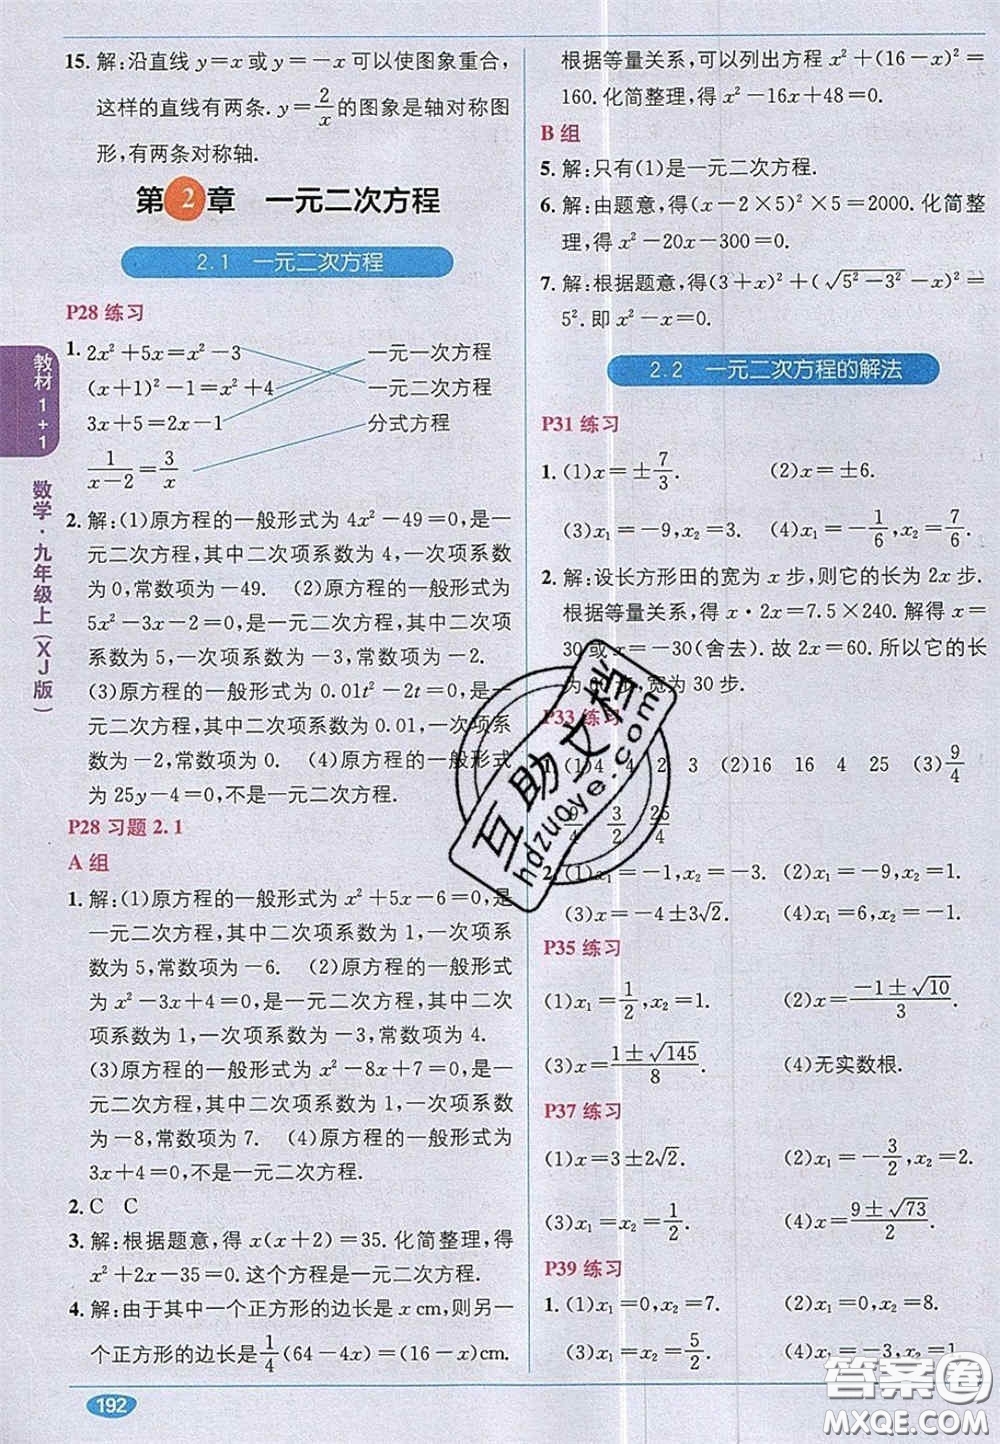 15. 解:沿直线 y=x 或 y=-x 可以使图象重合,
这样的直线有两条. y=2/x 的图象是轴对称图
形,有两条对称轴.
第2章 一元二次方程
2.1 一元二次方程
P28 练习
1. 2x²+5x=x²-3 一元一次方程
(x+1)²-1=x²+4 一元二次方程
3x+5=2x-1 分式方程
1/(x-2)=3/x
2. 解:(1)原方程的一般形式为 4x²-49=0,是一
元二次方程,其中二次项系数为 4,一次项系数
为 0,常数项为-49. (2)原方程的一般形式为
5x²-3x-2=0,是一元二次方程,其中二次项
系数为 5,一次项系数为-3,常数项为-2.
(3)原方程的一般形式为 0.01t²-2t=0,是一
元二次方程,其中二次项系数为 0.01,一次项系
数为-2,常数项为 0. (4)原方程的一般形式
为 25y-4=0,不是一元二次方程.
P28 习题 2.1
A 组
1. 解:(1)原方程的一般形式为 x²+5x-6=0,是
一元二次方程,其中二次项系数为 1,一次项系
数为 5,常数项为-6. (2)原方程的一般形式
为 x²-3x+4=0,是一元二次方程,其中二次
项系数为 1,一次项系数为-3,常数项为 4.
(3)原方程的一般形式为 x²-8x+7=0,是一
元二次方程,其中二次项系数为 1,一次项系数
为-8,常数项为 7. (4)原方程的一般形式为
3x+4=0,不是一元二次方程.
2. C C
3. 解:根据题意,得 x(x+2)=35. 化简整理,得
x²+2x-35=0. 这个方程是一元二次方程.
4. 解:由于其中一个正方形的边长是 x cm,则另一
个正方形的边长是 1/4(64-4x)=(16-x)cm.
根据等量关系,可以列出方程 x²+(16-x)²=
160. 化简整理,得 x²-16x+48=0.
B 组
5. 解:只有(1)是一元二次方程.
6. 解:由题意,得(x-2×5)²×5=2000. 化简整
理,得 x²-20x-300=0.
7. 解:根据题意,得(3+x)²+(√(5²-3²)-x)²=
5². 即 x²-x=0.
2.2 一元二次方程的解法
P31 练习
1. (1)x=±7/3. (2)x=±6.
(3)x₁=-9,x₂=4. (4)x₁=-1/6,x₂=7/6.
2. 解:设长方形田的宽为 x 步,则它的长为 2x 步.
根据等量关系,得 x·2x=7.5×240. 解得 x=
30或x=-30(舍去). 故 2x=60. 所以它的长
为 步,宽为 30 步.
P33 练习
(1)4 4 2 3 (2)16 16 4 25 (3)9/4
9/4 3/2 25/4
2. (1)x₁=-1,x₂=-3. (2)x₁=-9,x₂=1.
(3)x=-4±3√2. (4)x₁=6,x₂=-1.
P35 练习
(1)x₁=1/2,x₂=1. (2)x=(-1±√10)/3.
(3)x=(1±√145)/8. (4)无实数根.
P37 练习
(1)x=3±2√2. (2)x₁=-3/2,x₂=2.
(3)x₁=x₂=1/2. (4)x=(9±√73)/2.
P39 练习
1. (1)x₁=0,x₂=7. (2)x₁=0,x₂=8.
(3)x₁=x₂=5/2. (4)x₁=-3,x₂=1.
教材1+1
数学·九年级上(XJ版)
192
互助文档
hdzuoye.com
答案圈
MXQE.COM